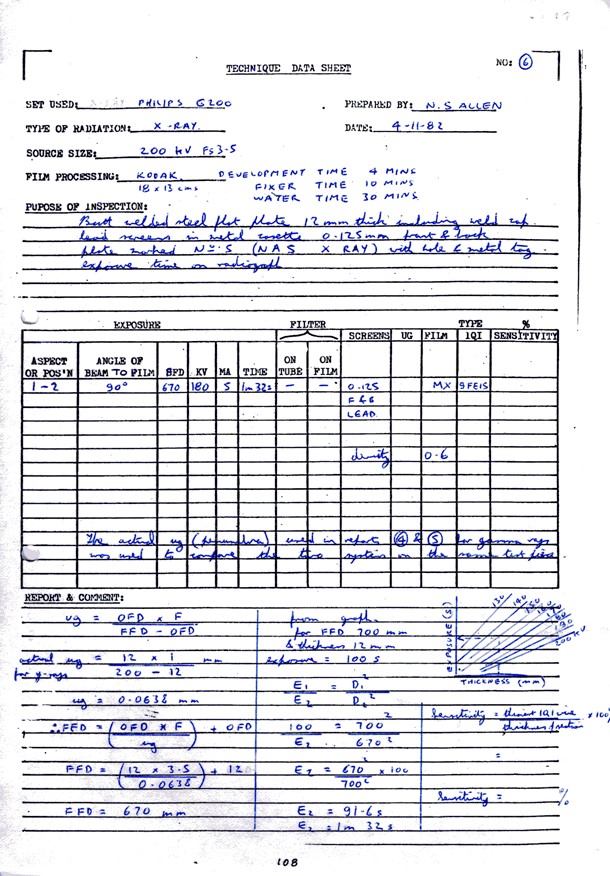 TECHNIQUE DATA SHEET
NO: 6
SET USED: X-RAY PHILIPS G200
PREPARED BY: N.S ALLEN
TYPE OF RADIATION: X-RAY.
DATE: 4-11-82
SOURCE SIZE: 200 KV FS3-5
FILM PROCESSING: KODAK. DEVELOPMENT TIME 4 MINS
18 x 13 cms FIXER TIME 10 MINS
WATER TIME 30 MINS
PUPOSE OF INSPECTION:
Butt welded steel flat plate 12mm thick including weld cap.
lead screens in metal casette 0.125mm front & back
plate marked No 5 (NAS X RAY) with hole & metal tag.
exposure time on radiograph
EXPOSURE FILTER TYPE %
SCREENS UG FILM IQI SENSITIVITY
ASPECT OR POS'N ANGLE OF BEAM TO FILM SFD KV MA TIME ON TUBE ON FILM
1-2 90° 670 180 5 1m32s – – 0.125 MX 9FE15
F & B
LEAD
density 0.6
The actual ug (penumbra) used in reports 4 & 5 for gamma rays
was used to compare the two systems on the same test piece
REPORT & COMMENT:
ug = OFD x F / FFD - OFD
actual ug for γ-rays = 12 x 1 / 200 - 12 mm
ug = 0.0638 mm
∴ FFD = (OFD x F / ug) + OFD
FFD = (12 x 3.5 / 0.0638) + 12
FFD = 670 mm
from graph
for FFD 700 mm
& thickness 12mm
exposure = 100 s
E1 / E2 = D1² / D2²
100 / E2 = 700² / 670²
E2 = 670² / 700² x 100
E2 = 91.6s
E2 = 1m 32s
EXPOSURE (S)
130 140 150 160 180 200 KV
THICKNESS (mm)
Sensitivity = thinnest IQI wire / thickness of section x 100
=
Sensitivity = %
108